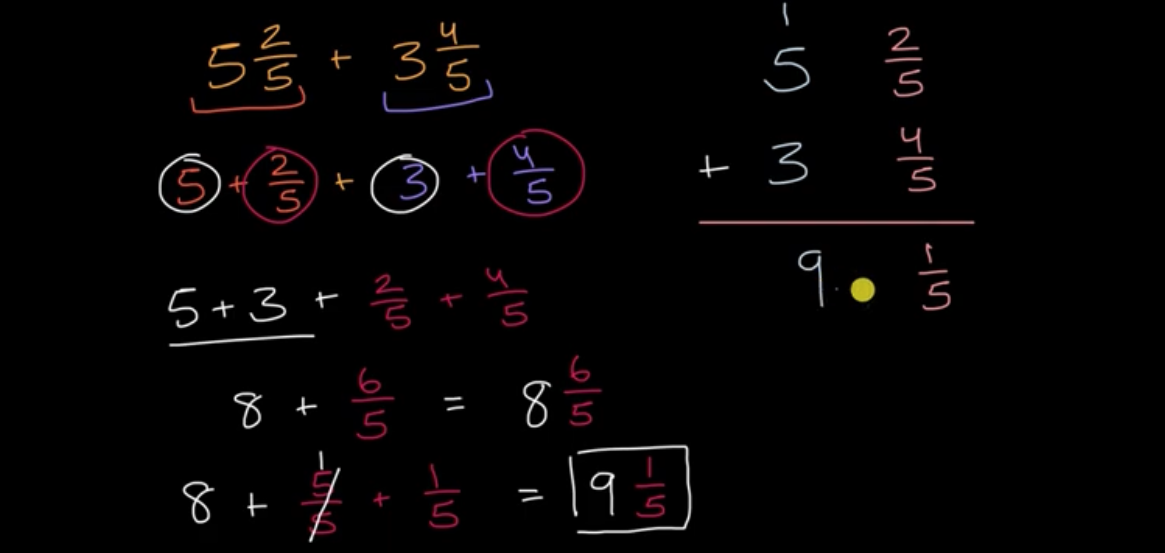 5 2/5 + 3 4/5
5 + 2/5 + 3 + 4/5
5 + 3 + 2/5 + 4/5
8 + 6/5 = 8 6/5
8 + 5/5 1 + 1/5 = 9 1/5
1
5 2/5
+ 3 4/5
9 1/5